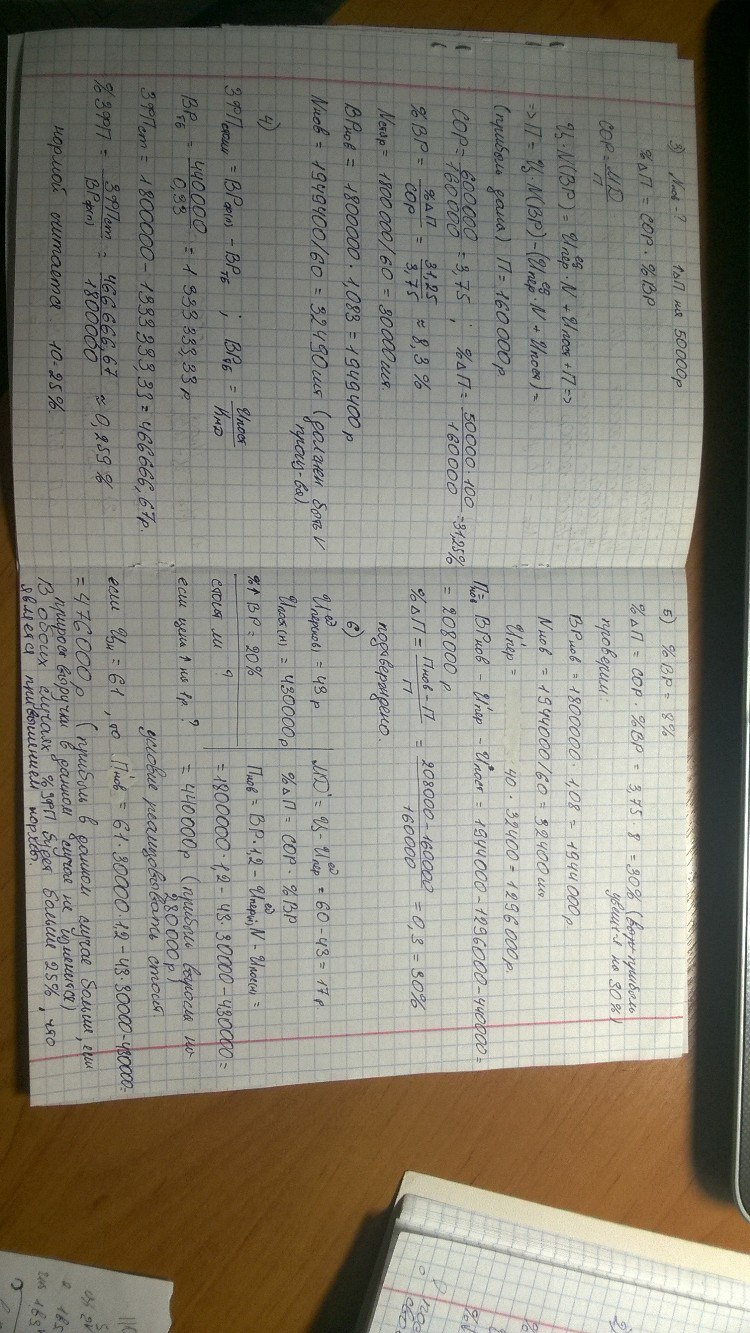 3) Nнов - ? ↑ΔП на 50000р
%ΔП = СОР · %ВР
СОР = МД/П
Ц·N(ВР) = Иᵉᵈпер·N + Ипост + П =>
=> П = Ц·N(ВР) - (Иᵉᵈпер·N + Ипост) =
(прибыль дана) П = 160000р
СОР = 600000/160000 = 3,75 ; %ΔП = 50000·100/160000 = 31,25%
%ВР = %ΔП/СОР = 31,25/3,75 ≈ 8,3 %
Nстар = 1800000/60 = 30000шт.
ВРнов = 1800000 · 1,083 = 1949400 р
Nнов = 1949400/60 = 32490шт (должен быть V
произ-ва).
4)
ЗФПстоим = ВРф(п) - ВРТБ ; ВРТБ = Ипост/КМД
ВРТБ = 440000/0,33 = 1 333 333,33 р.
ЗФПст = 1800000 - 1333333,33 = 466666,67р.
%ЗФП = ЗФПст/ВРф(п) = 466 666,67/1800000 ≈ 0,259 %
нормой считается 10-25%.
5) %ВР = 8%
%ΔП = СОР · %ВР = 3,75 · 8 = 30% (прибыль
увел-я на 30%)
проверим:
ВРнов = 1800000 · 1,08 = 1944000р.
Nнов = 1944000/60 = 32400шт.
И'пер = 40 · 32400 = 1296000р.
Пнов = ВРнов - И'пер - И'пост = 1944000 - 1296000 - 440000 =
= 208000 р
%ΔП = Пнов - П/П = 208000 - 160000/160000 = 0,3 = 30%
подтверждено.
6)
Иᵉᵈпер(нов) = 43 р
Ипост(н) = 430000р
%↑ ВР = 20%
стоит ли ?
МД' = Ц - Иᵉᵈпер = 60 - 43 = 17 р.
%ΔП = СОР · %ВР
Пнов = ВР·1,2 - Иᵉᵈпер(н)N - Ипос(н) =
= 1800000·1,2 - 43·30000 - 430000 =
если цена ↑ на 1р. ? = 440000р (прибыль выросла на
280000р)
условие реализовывать стоит
если Цн = 61 , то П'нов = 61·30000·1,2 - 43·30000 - 430000 =
= 476000 р (прибыль в данном случае больше, если
прирост выручки в данном случае не изменится)
В обоих случаях %ЗФП будет больше 25%, что
является привышением нормы.